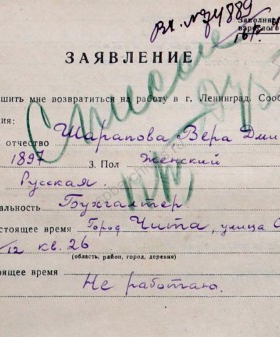 Вх. №74889
Заполня
ЗАЯВЛЕНИЕ
шить мне возвратиться на работу в г. Ленинград. Сооб
ия: Шарапова Вера Дми
отчество
1897 3. Пол женский
Русская
альность Бухгалтер
стоящее время Город Чита, улица
/12 кв. 26
(область, район, город, деревня)
оящее время Не работаю.